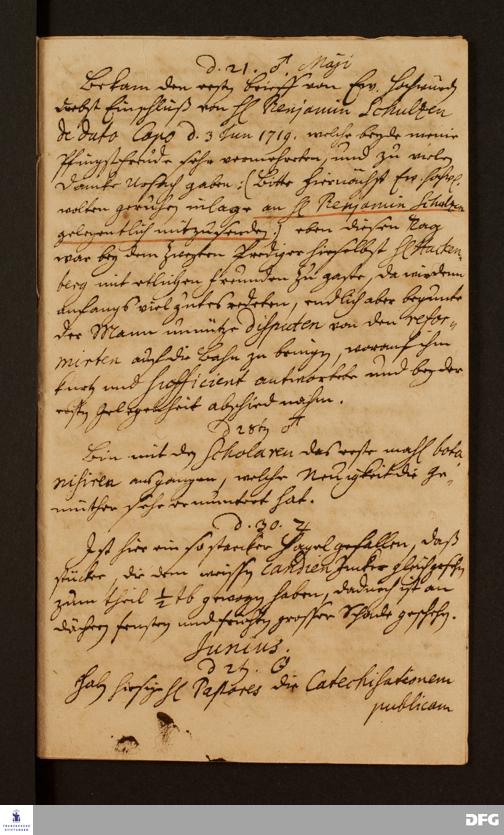 d. 21. ♂ Maji
Bekam den ersten brieff von Ew. Hochwürd.
nebst Einschluß von H. Benjamin Schultzen
de dato Capo d. 3 Jun 1719. welche beyde meine
Pfingstfreude sehr vermehreten, und zu vielen
Dancke Ursach gaben. (Bitte hiernächst Ew. Hochw.
wolten geruhen inlage an H. Benjamin Schultzen
gelegentlich mitzusenden.) eben diesen Tag
war bey dem zweyten Prediger hieselbst H. Hacken-
berg mit etlichen freunden zu gaste, da wir denn
anfangs viel gutes redeten, endlich aber begunte
der Mann unnütze disputen von den refor-
mirten auf die Bahn zu bringen, worauf ihm
kurtz und sufficient antwortete und bey der
ersten gelegenheit abschied nahm.
d 28ten ♂
Bin mit den Scholaren das erste mahl bota-
nisiren ausgangen, welche Neuigkeit die ge-
müther sehr ermuntert hat.
d. 30. ♃
Ist hier ein so starcker Hagel gefallen, daß
stücke, die dem weissen Candien Zucker gleich gesehen
zum theil ½ ℔ gewogen haben, dadurch ist an
dächern fenstern und früchten grosser Schade geschehen.
Junius.
d 2t. ☉
H. Pastores die Catechisationem
publicam
FRANCKESCHE STIFTUNGEN
DFG